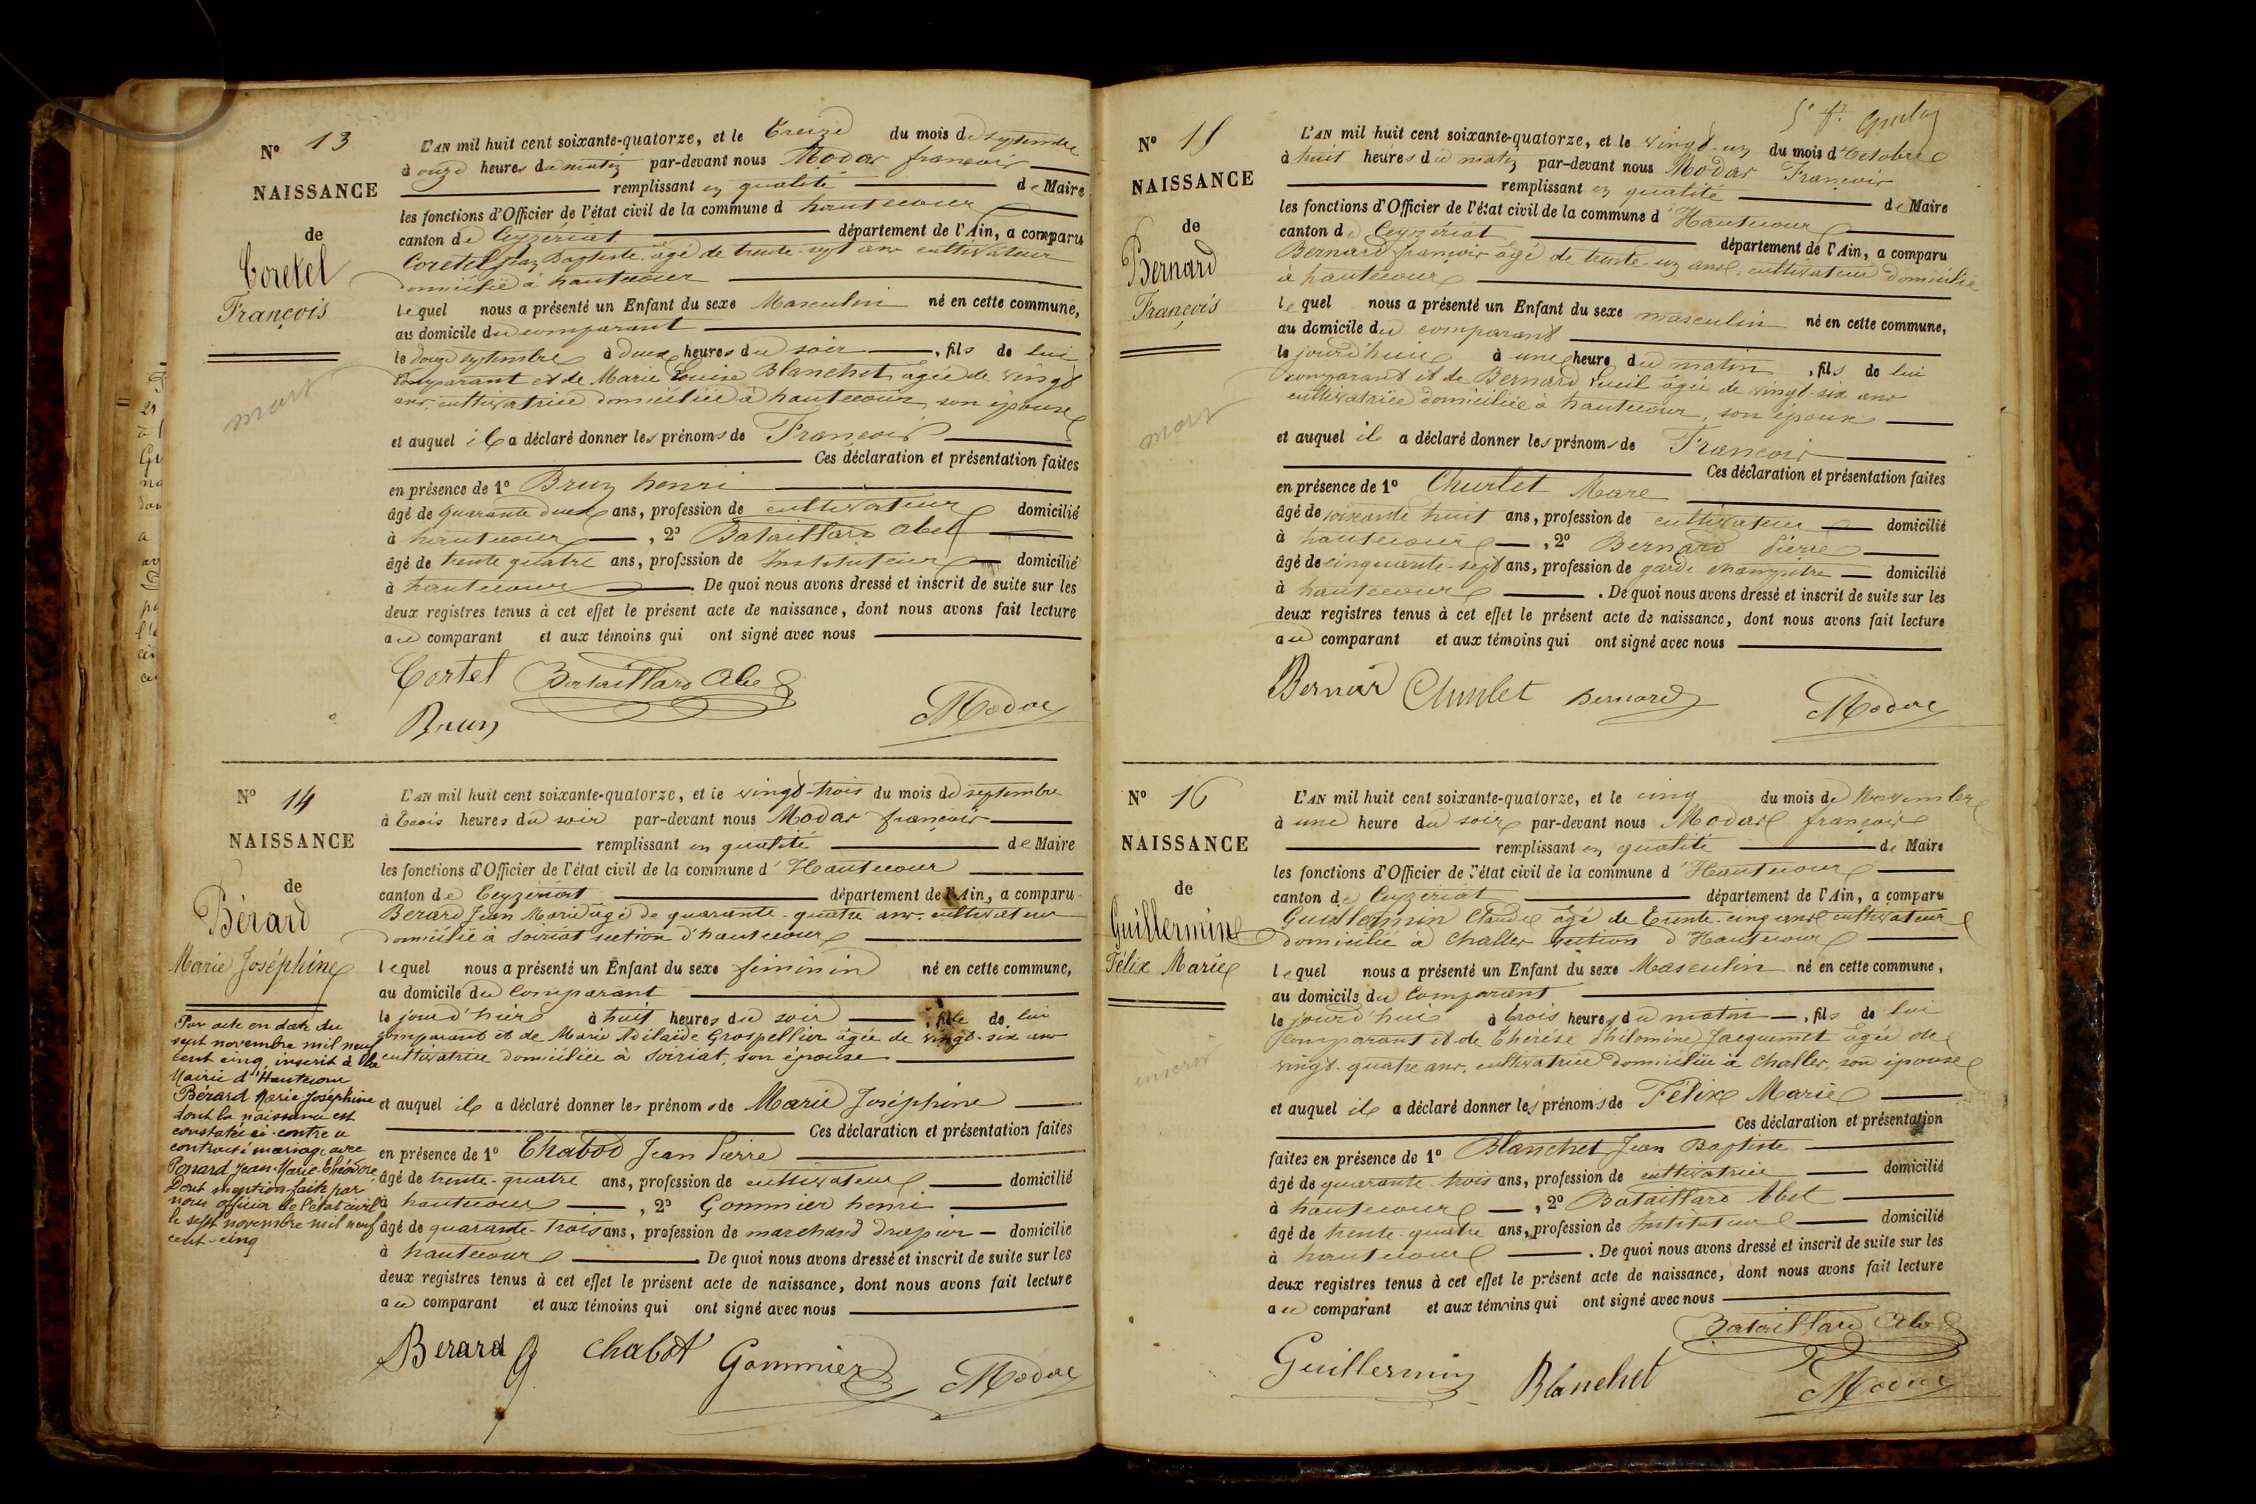 N° 13
NAISSANCE
de
Coretel
François
mort
L'AN mil huit cent soixante-quatorze, et le treize du mois de septembre
à onze heures du matin par-devant nous Modas françois
remplissant en qualité de Maire
les fonctions d'Officier de l'état civil de la commune d hautecour
canton de Ceyzériat département de l'Ain, a comparu
Coretel Jean Baptiste âgé de trente-sept ans cultivateur
domicilié à hautecour
lequel nous a présenté un Enfant du sexe Masculin né en cette commune,
au domicile du comparant
le douze septembre à deux heures du soir, fils de lui
Comparant et de Marie Louise Blanchet âgée de vingt
ans, cultivatrice domiciliée à hautecour, son épouse
et auquel il a déclaré donner les prénoms de François
Ces déclaration et présentation faites
en présence de 1° Brun henri
âgé de quarante deux ans, profession de cultivateur domicilié
à hautecour, 2° Bataillard Abel
âgé de trente quatre ans, profession de Instituteur domicilié
à hautecour. De quoi nous avons dressé et inscrit de suite sur les
deux registres tenus à cet effet le présent acte de naissance, dont nous avons fait lecture
au comparant et aux témoins qui ont signé avec nous
Cortel Bataillard Abel
Brun Modas
N° 14
NAISSANCE
de
Bérard
Marie Joséphine
Par acte en date du
sept novembre mil neuf
cent cinq, inscrit à la
Mairie d'Hautecour
Bérard Marie Joséphine
dont la naissance est
constatée ci-contre a
contracté mariage avec
Ponard Jean-Marie-Théodore
Dont mention faite par
nous officier de l'état civil
le sept novembre mil neuf
cent-cinq
L'AN mil huit cent soixante-quatorze, et le vingt-trois du mois de septembre
à trois heures du soir par-devant nous Modas françois
remplissant en qualité de Maire
les fonctions d'Officier de l'état civil de la commune d'Hautecour
canton de Ceyzériat département de l'Ain, a comparu
Berard Jean Marie âgé de quarante-quatre ans, cultivateur
domicilié à Soiriat section d'hautecour
lequel nous a présenté un Enfant du sexe féminin né en cette commune,
au domicile du Comparant
le jourd'hui à huit heures du soir, fille de lui
comparant et de Marie Adélaïde Grospellier âgée de vingt-six ans
cultivatrice domiciliée à Soiriat, son épouse
et auquel il a déclaré donner les prénoms de Marie Joséphine
Ces déclaration et présentation faites
en présence de 1° Chabod Jean Pierre
âgé de trente-quatre ans, profession de cultivateur domicilié
à hautecour, 2° Gommier henri
âgé de quarante-trois ans, profession de marchand drapier domicilié
à hautecour. De quoi nous avons dressé et inscrit de suite sur les
deux registres tenus à cet effet le présent acte de naissance, dont nous avons fait lecture
au comparant et aux témoins qui ont signé avec nous
Berard Chabot Gommier Modas
N° 15
NAISSANCE
de
Bernard
François
mort
L'AN mil huit cent soixante-quatorze, et le vingt-un du mois d'Octobre
à huit heures du matin par-devant nous Modas François
remplissant en qualité de Maire
les fonctions d'Officier de l'état civil de la commune d'Hautecour
canton de Ceyzériat département de l'Ain, a comparu
Bernard françois âgé de trente-un ans, cultivateur domicilié
à hautecour
lequel nous a présenté un Enfant du sexe masculin né en cette commune,
au domicile du comparant
le jourd'hui à une heure du matin, fils de lui
comparant et de Bernard âgée de vingt-six ans
cultivatrice domiciliée à hautecour, son épouse
et auquel il a déclaré donner les prénoms de François
Ces déclaration et présentation faites
en présence de 1° Churlet Marc
âgé de soixante huit ans, profession de cultivateur domicilié
à hautecour, 2° Bernard Pierre
âgé de cinquante-sept ans, profession de garde champêtre domicilié
à hautecour. De quoi nous avons dressé et inscrit de suite sur les
deux registres tenus à cet effet le présent acte de naissance, dont nous avons fait lecture
au comparant et aux témoins qui ont signé avec nous
Bernard Churlet Bernard Modas
N° 16
NAISSANCE
de
Guillermin
Félix Marie
inscrit
L'AN mil huit cent soixante-quatorze, et le cinq du mois de Novembre
à une heure du soir par-devant nous Modas françois
remplissant en qualité de Maire
les fonctions d'Officier de l'état civil de la commune d'Hautecour
canton de Ceyzériat département de l'Ain, a comparu
Guillermin Claude âgé de Trente-cinq ans cultivateur
domicilié à Challes section d'Hautecour
lequel nous a présenté un Enfant du sexe Masculin né en cette commune,
au domicile du Comparant
le jourd'hui à trois heures du matin, fils de lui
Comparant et de Thérèse Philomène Jacquemet âgée de
vingt-quatre ans, cultivatrice domiciliée à Challes, son épouse
et auquel il a déclaré donner les prénoms de Félix Marie
Ces déclaration et présentation
faites en présence de 1° Blanchet Jean Baptiste
âgé de quarante-trois ans, profession de cultivatrice domicilié
à hautecour, 2° Bataillard Abel
âgé de trente-quatre ans, profession de Instituteur domicilié
à hautecour. De quoi nous avons dressé et inscrit de suite sur les
deux registres tenus à cet effet le présent acte de naissance, dont nous avons fait lecture
au comparant et aux témoins qui ont signé avec nous
Bataillard Abel
Guillermin Blanchet Modas